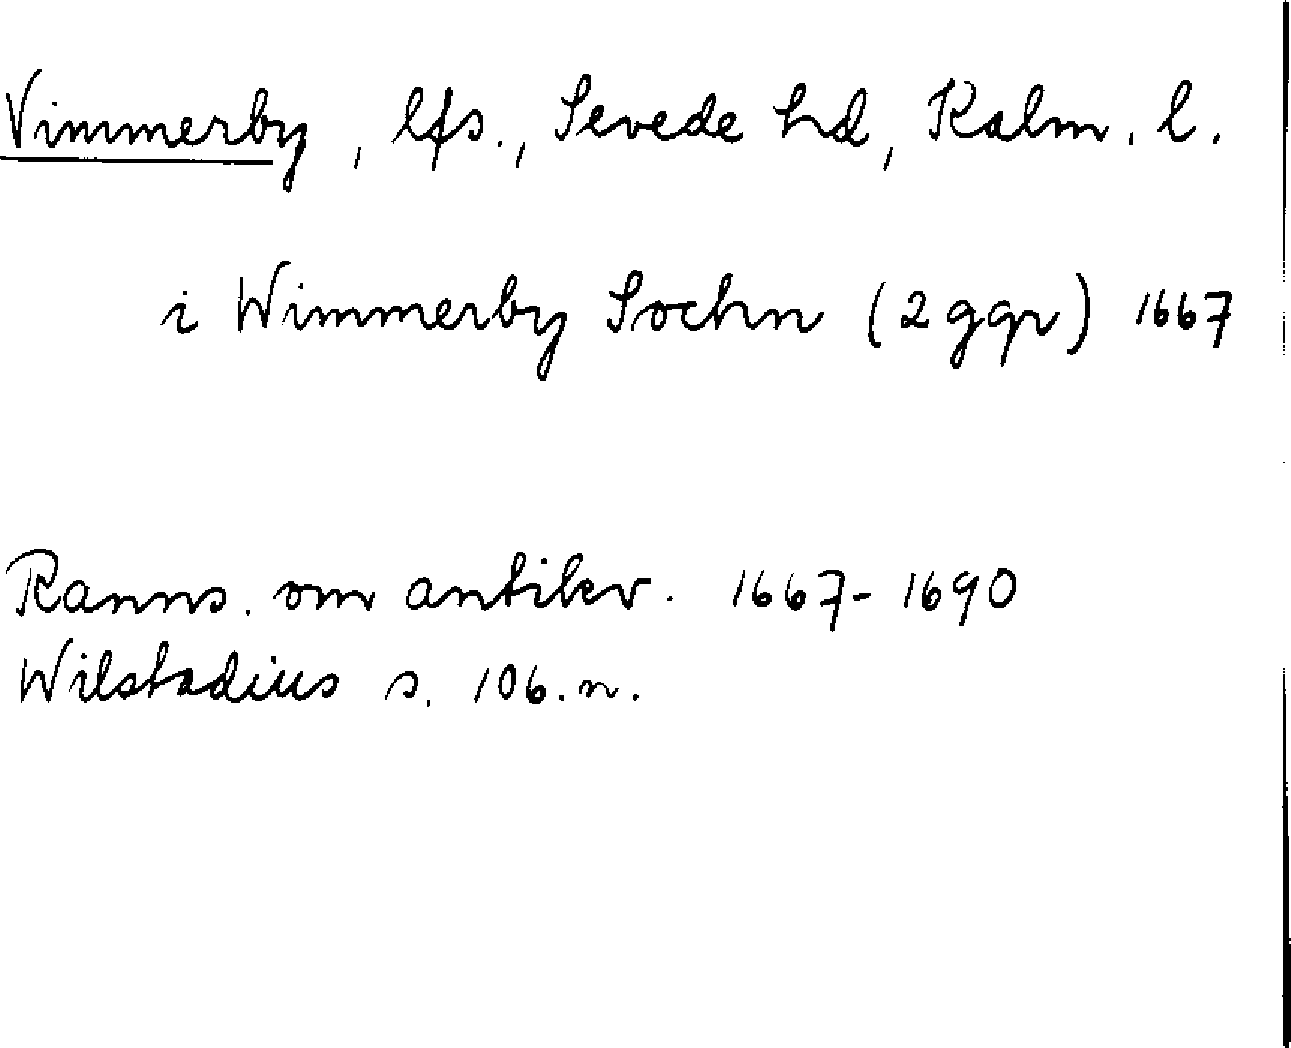 Vimmerby, lfs., Sevede hd, Kalm. l.
i Wimmerby Sochn (2 ggr) 1667
Ranns. om antikv. 1667-1690
Wilstadius s. 106.n.